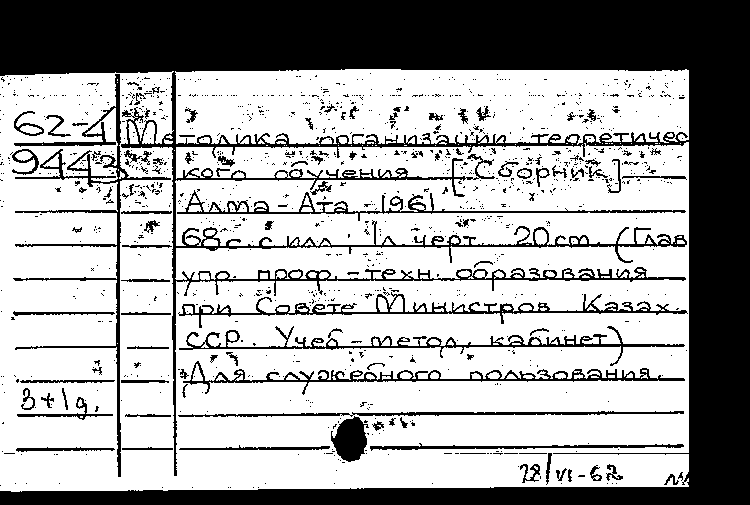 62-4 Методика организации теоретичес
9443 кого обучения [Сборник]
Алма-Ата, 1961.
68с. с илл; 1л. черт. 20cm. (Глав
упр. проф.-техн. образования
при Совете Министров Казах.
ССР. Учеб-метод, кабинет)
Для служебного пользования.
3+1g.
28/VI-62